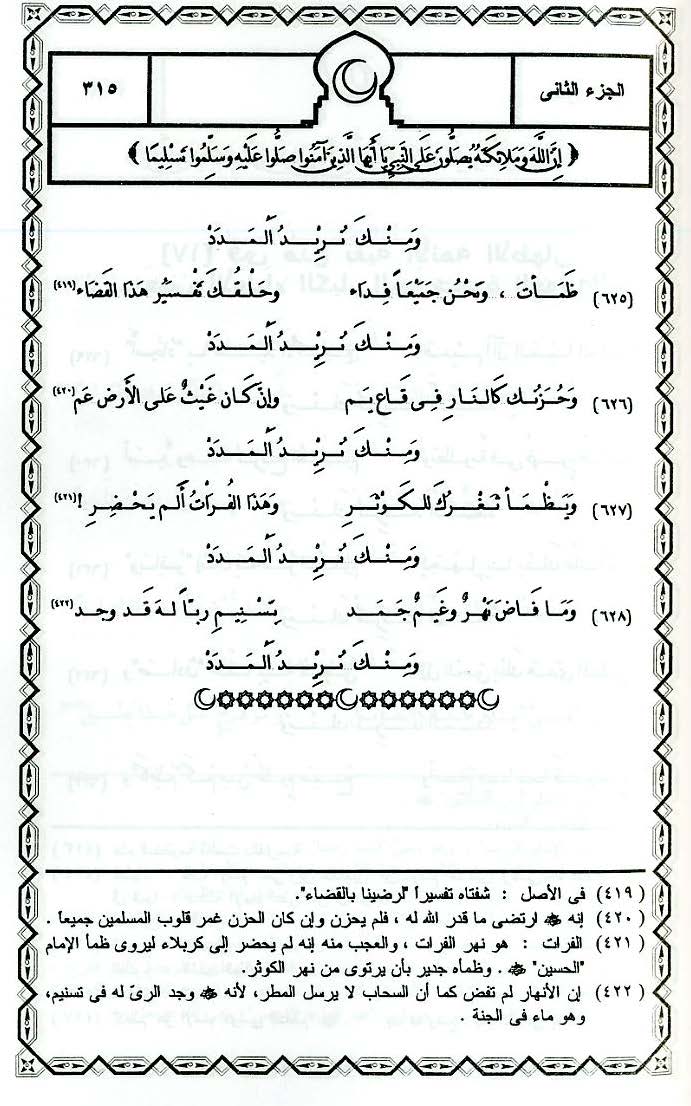 الجزء الثانى
٣١٥
﴿ إِنَّ اللَّهَ وَمَلَائِكَتَهُ يُصَلُّونَ عَلَى النَّبِيِّ يَا أَيُّهَا الَّذِينَ آمَنُوا صَلُّوا عَلَيْهِ وَسَلِّمُوا تَسْلِيمًا ﴾
وَمِنْكَ نُرِيْدُ الْمَدَدْ
(٦٢٥) ظَمَأْتَ ، ونَحْنُ جَمِيْعَاً فِدَاء وحَلْقُكَ تَفْسِيْرُ هَذَا القَضَاء (٤١٩)
وَمِنْكَ نُرِيْدُ الْمَدَدْ
(٦٢٦) وَحُزْنُكَ كَالنَارِ فِى قَاعِ يَم وإنْ كَانَ غَيْثٌ عَلى الأَرْضِ عَم (٤٢٠)
وَمِنْكَ نُرِيْدُ الْمَدَدْ
(٦٢٧) وَيَظْمَأ ثَغْرُكَ للكَوْثَرِ وَهَذَا الفُرَاتُ أَلَم يَحْضِرِ !(٤٢١)
وَمِنْكَ نُرِيْدُ الْمَدَدْ
(٦٢٨) وَمَا فَاضَ نَهْرٌ وغَيمٌ جَمَد بِتَسْنِيمِ ريّاً لَهَ قَد وجد (٤٢٢)
وَمِنْكَ نُرِيْدُ الْمَدَدْ
(٤١٩) فى الأصل : شفتاه تفسيراً "لرضينا بالقضاء".
(٤٢٠) إنه ﷺ ارتضى ما قدر الله له ، فلم يحزن وإن كان الحزن غمر قلوب المسلمين جميعاً .
(٤٢١) الفرات : هو نهر الفرات ، والعجب منه إنه لم يحضر إلى كربلاء ليروى ظمأ الإمام
"الحسين" . وظمأه جدير بأن يرتوى من نهر الكوثر.
(٤٢٢) إن الأنهار لم تفض كما أن السحاب لا يرسل المطر، لأنه وجد الرىّ له فى تسنيم،
وهو ماء فى الجنة .